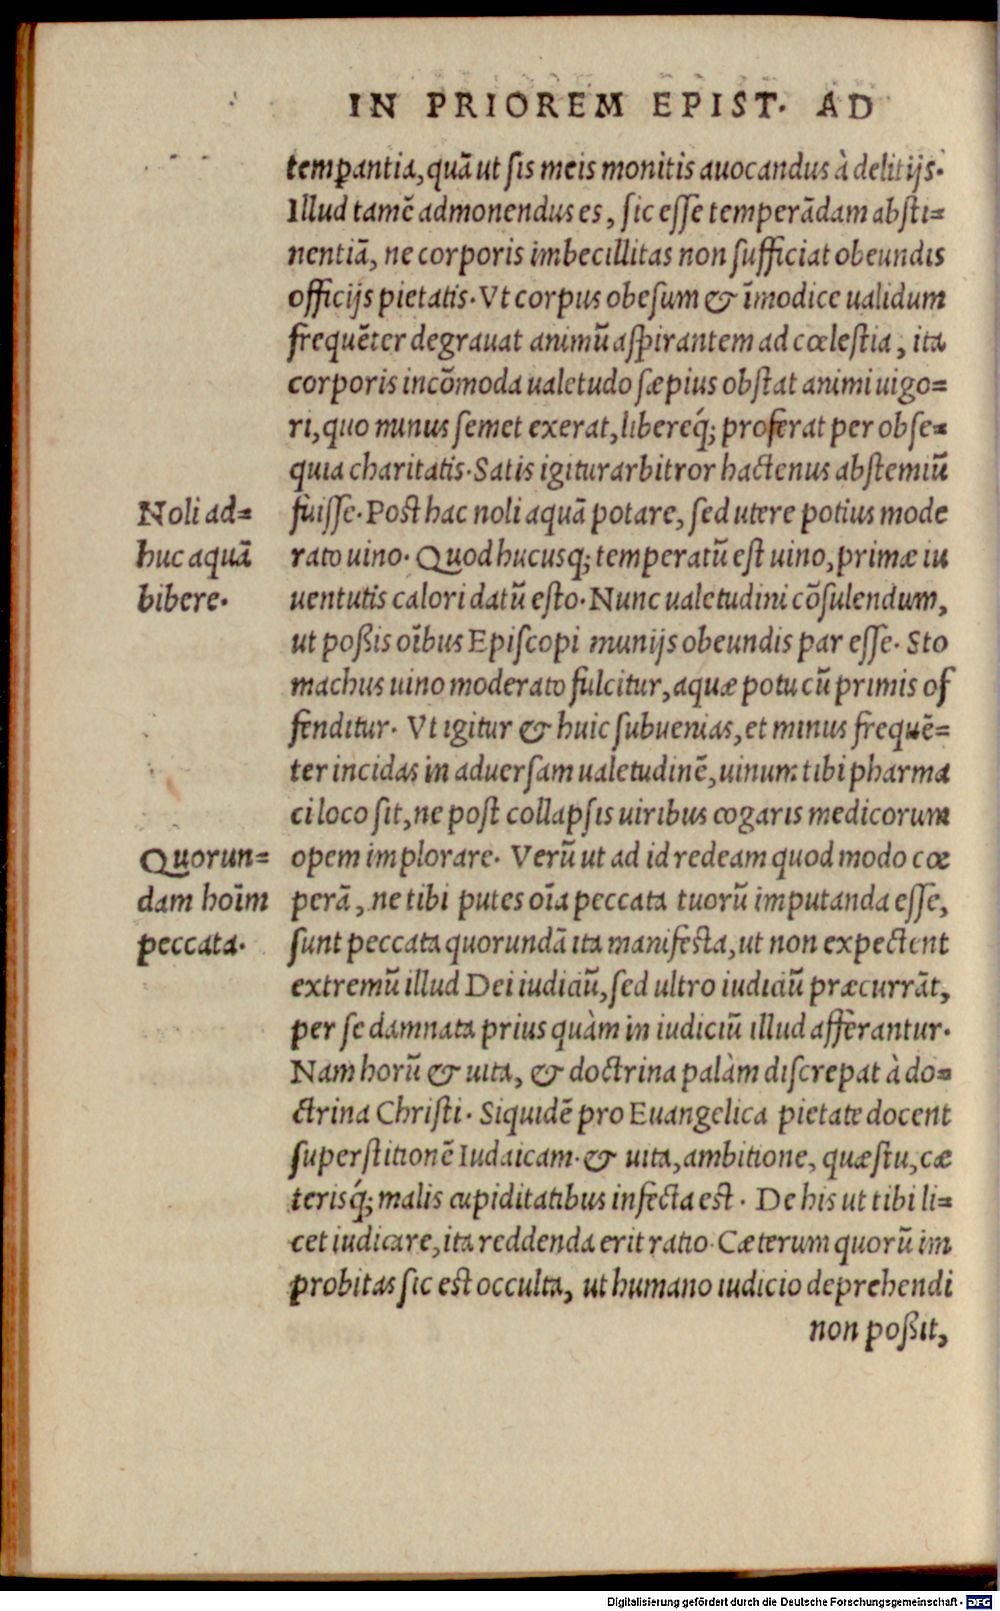 IN PRIOREM EPIST. AD
temperantia, quā ut ſis meis monitis auocandus à delitijs.
Illud tamē admonendus es, ſic eſſe temperādam abſti=
nentiā, ne corporis imbecillitas non ſufficiat obeundis
officijs pietatis. Vt corpus obeſum & īmodice ualidum
frequēter degrauat animū aſpirantem ad cœleſtia, ita
corporis incōmoda ualetudo ſæpius obſtat animi uigo=
ri, quo minus ſemet exerat, libereq́; proferat per obſe=
quia charitatis. Satis igitur arbitror hactenus abſtemiū
Noli ad=
huc aquā
bibere.
fuiſſe. Poſt hac noli aquā potare, ſed utere potius mode
rato uino. Quod hucusq; temperatū eſt uino, primæ iu
uentutis calori datū eſto. Nunc ualetudini cōſulendum,
ut poßis oībus Epiſcopi munijs obeundis par eſſe. Sto
machus uino moderato fulcitur, aquæ potu cū primis of
fenditur. Vt igitur & huic ſubuenias, et minus frequē=
ter incidas in aduerſam ualetudinē, uinum tibi pharma
ci loco ſit, ne poſt collapſis uiribus cogaris medicorum
Quorun=
dam hoīm
peccata.
opem implorare. Verū ut ad id redeam quod modo cœ
perā, ne tibi putes oīa peccata tuorū imputanda eſſe,
ſunt peccata quorundā ita manifeſta, ut non expectent
extremū illud Dei iudiciū, ſed ultro iudiciū præcurrāt,
per ſe damnata prius quàm in iudiciū illud afferantur.
Nam horū & uita, & doctrina palàm diſcrepat à do=
ctrina Chriſti. Siquidē pro Euangelica pietate docent
ſuperſtitionē Iudaicam. & uita, ambitione, quæſtu, cæ
terisq́; malis cupiditatibus infecta eſt. De his ut tibi li=
cet iudicare, ita reddenda erit ratio. Cæterum quorū im
probitas ſic eſt occulta, ut humano iudicio deprehendi
non poßit,
Digitalisierung gefördert durch die Deutsche Forschungsgemeinschaft - DFG